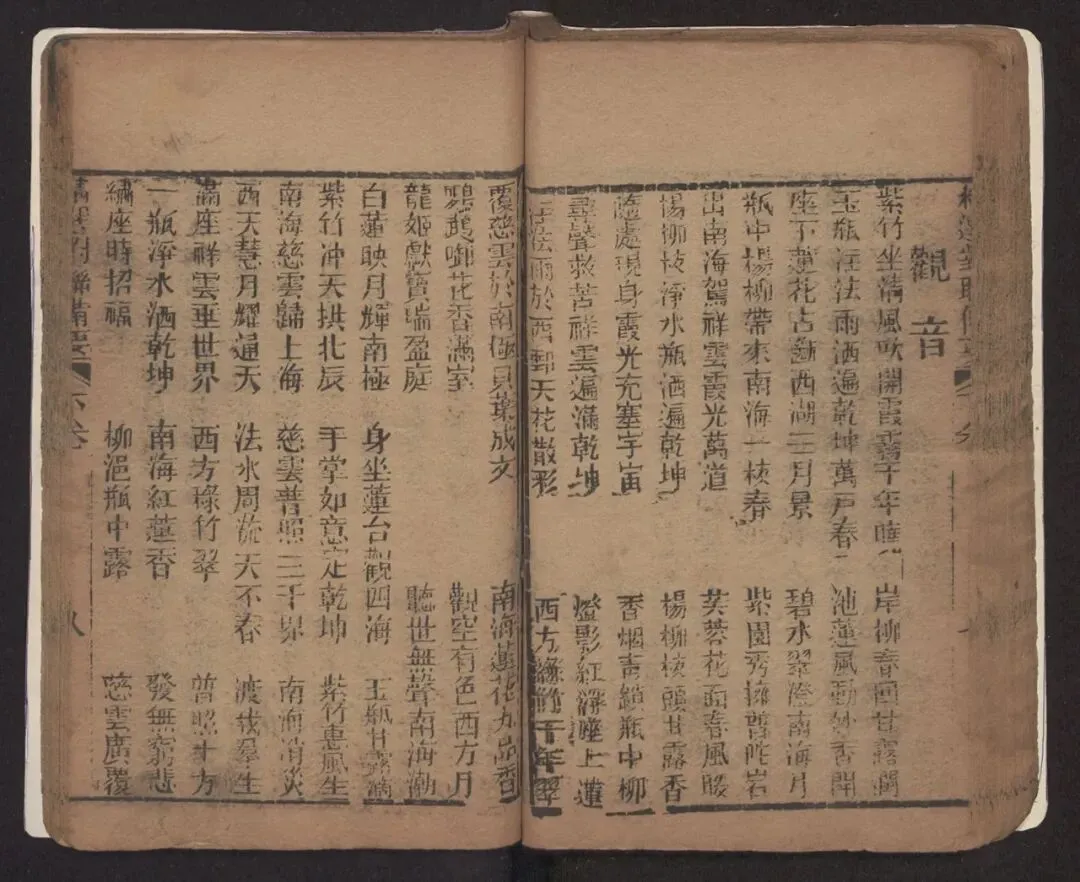 觀音
紫竹坐清風吹開霞靄千年 岸柳春回甘露
玉瓶注法雨洒遍乾坤萬戶春 池蓮風動妙香開
座下蓮花古 西湖三月景 碧水翠澄南海月
瓶中楊柳帶來南海一枝春 紫園秀擁普陀岩
出南海駕祥雲霞光萬道 芙蓉花面春風暖
楊柳枝淨水瓶洒遍乾坤 楊柳枝頭甘露香
隨處現身霞光充塞宇宙 香烟靑鎖瓶中柳
尋聲救苦祥雲遍滿乾坤 燈影紅浮座上蓮
法雨於西 天花散彩 西方綠竹千年翠
覆慈雲於南極貝葉成文 南海蓮花九品香
鸚鵡啣花香滿室 觀空有色西方月
龍姬獻寶瑞盈庭 聽世無聲南海潮
白蓮映月輝南極 身坐蓮台觀四海 玉瓶甘露滴
紫竹冲天拱北辰 手掌如意定乾坤 紫竹惠風生
南海慈雲歸上海 慈雲普照三千界 南海消炎
西天慧月耀通天 法水周流天不春 渡我羣生
滿座祥雲垂世界 西方琭竹翠 普照十方
一瓶淨水洒乾坤 南海紅蓮香 發無窮悲
繡座時招福 柳浥瓶中露 慈雲廣覆
對聯備要 六卷 八